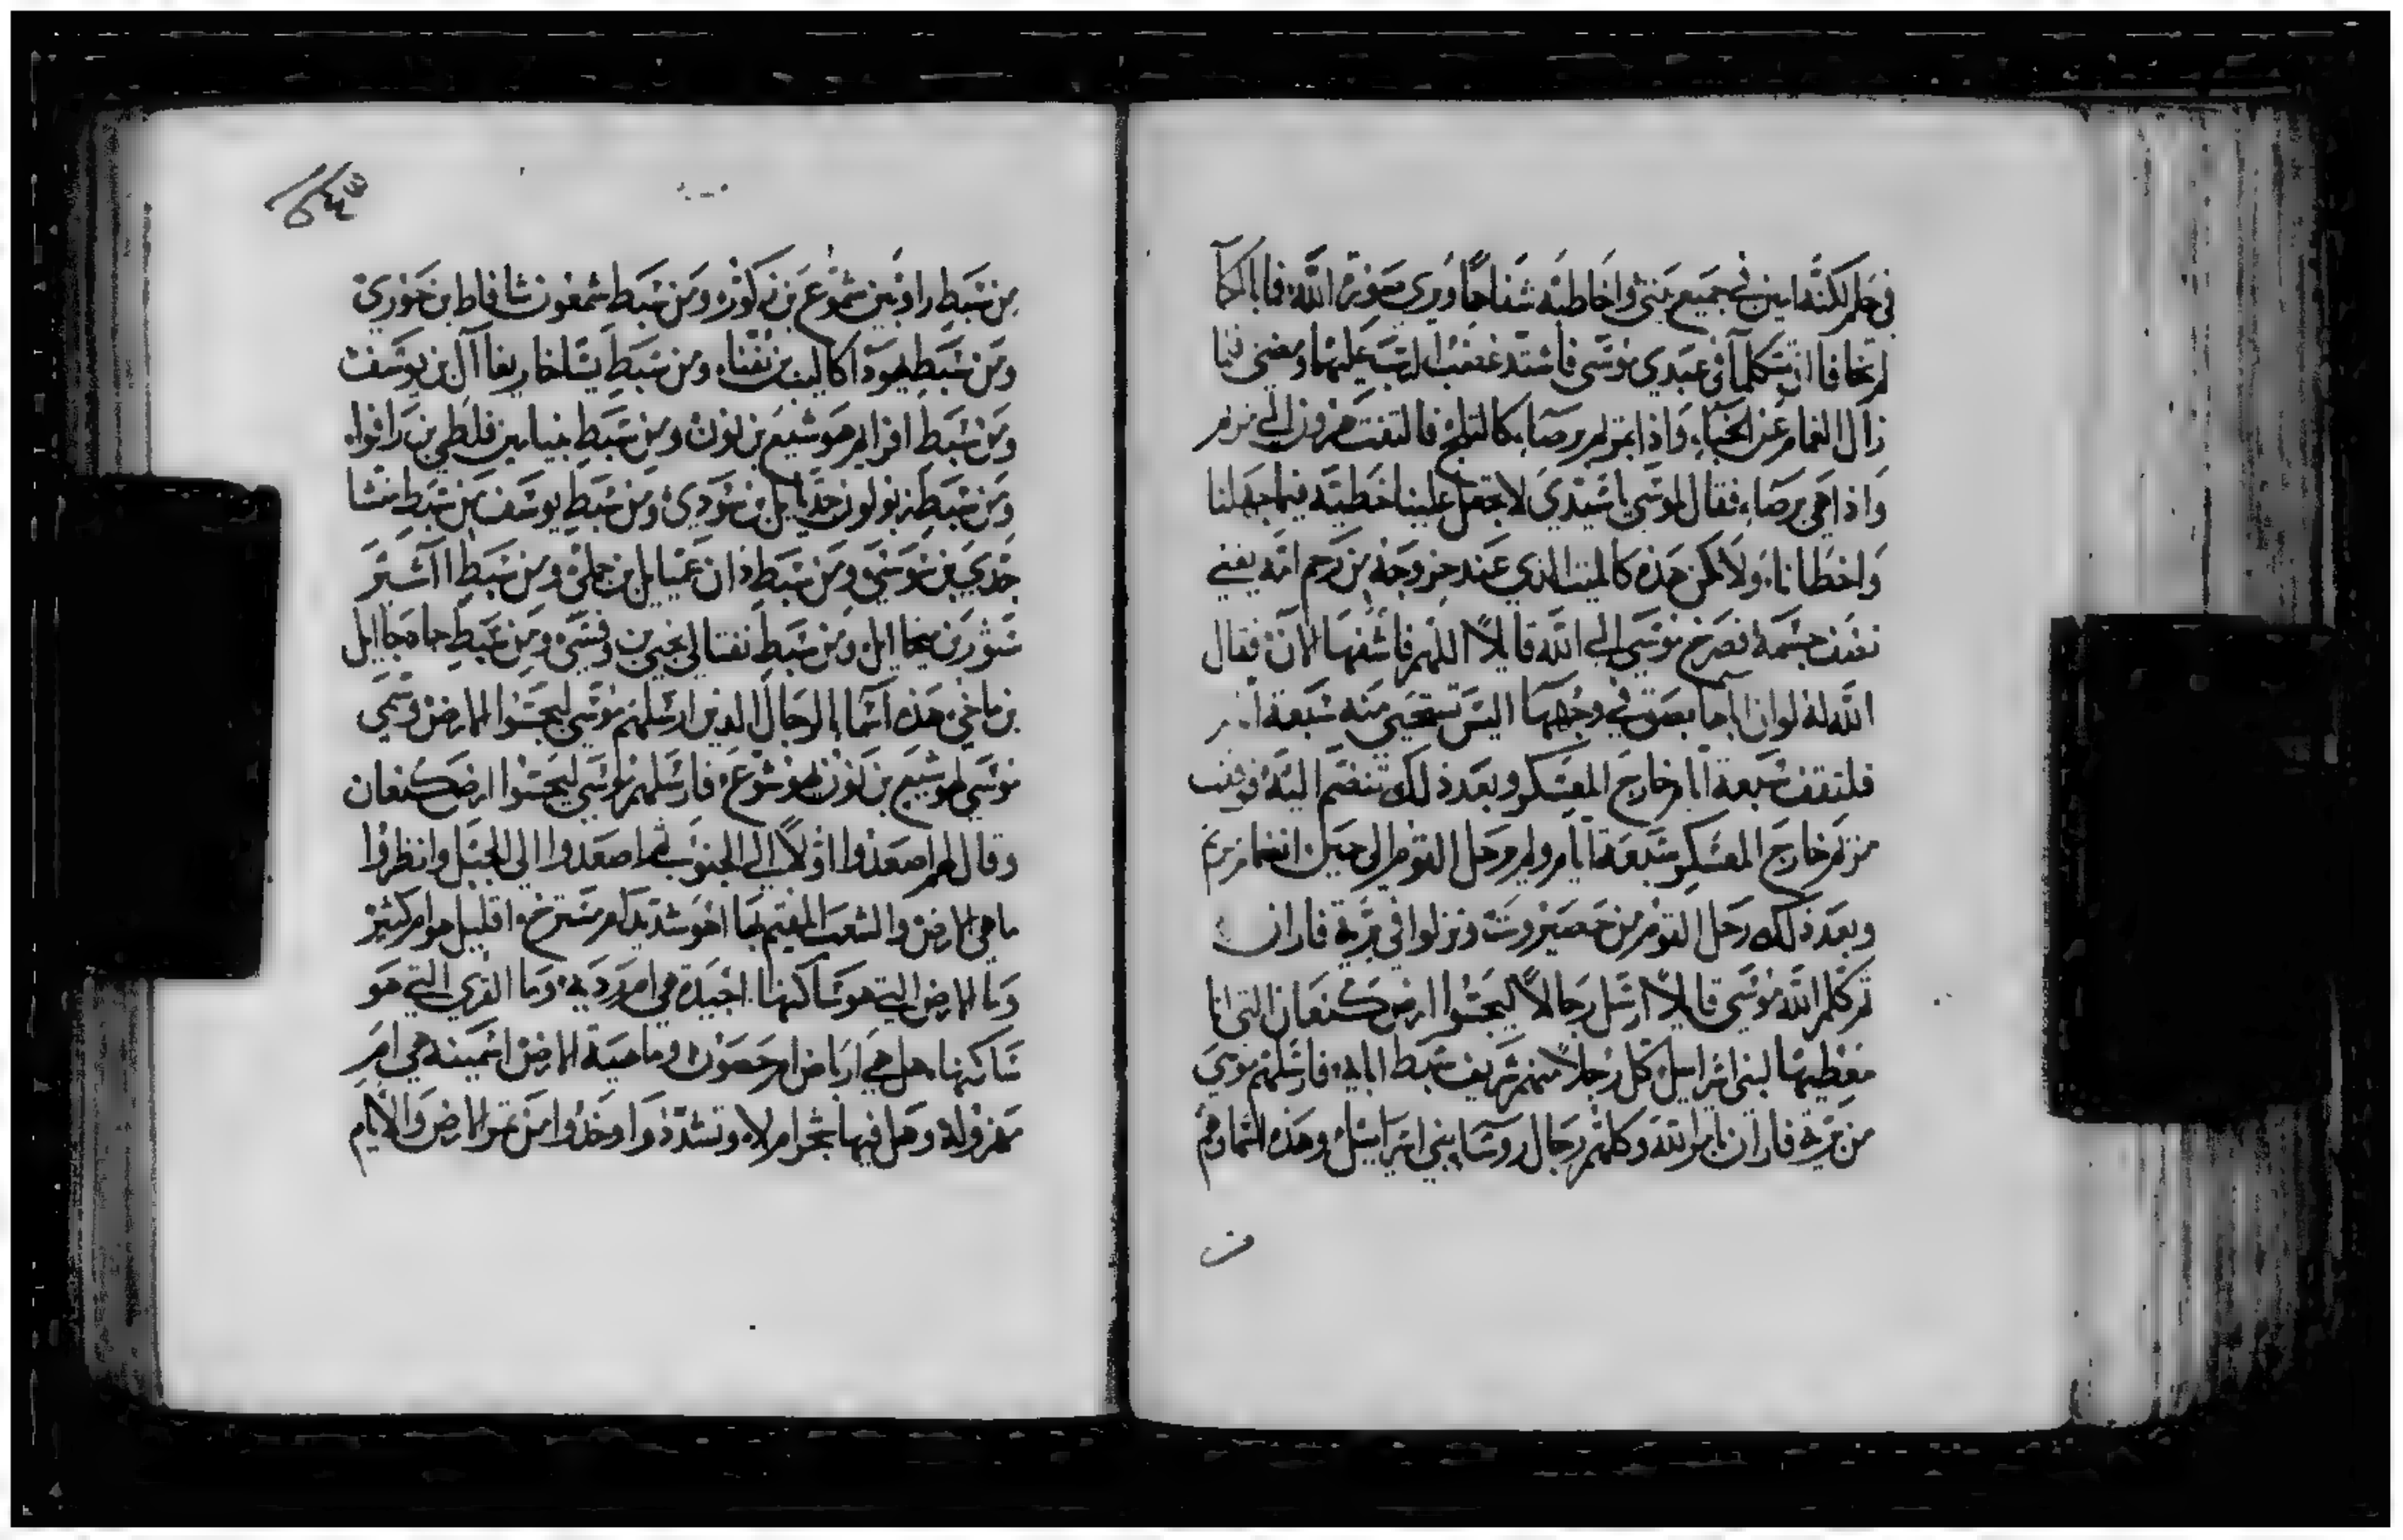 في حلم لكنه امين في جميع بيتي واخاطبه شفاها ويري صورة الله فما بالكما
لم تخافا ان تتكلما في عبدي موسي فاشتد غضب الرب عليهما ومضي فلما
زال الغمام عن الخباء واذا بمريم برصاء كالثلج فالتفت هرون الي مريم
واذا هي برصاء فقال لموسي يا سيدي لا تجعل علينا خطية فيما جهلنا
واخطانا ولا تكن هذه كالميت الذي عند خروجه من رحم امه يفني
نصف جسمه فصرخ موسي الي الله قايلا اللهم فاشفها الان فقال
الله له لو ان اباها بصق في وجهها اليس تستحيي منه سبعة ايام
فلتقف سبعة ايام خارج المعسكر وبعد ذلك تنضم اليه فوقفت
مريم خارج المعسكر سبعة ايام ولم يرحل القوم الي حين انضمام مريم
وبعد ذلك رحل القوم من حصيروت ونزلوا في برية فاران
ثم كلم الله موسي قايلا ارسل رجالا ليجسوا ارض كنعان التي انا
معطيها لبني اسراييل كل رجلا منهم شريف سبط ابايه فارسلهم موسي
من برية فاران بامر الله وكلهم رجال روسا بني اسراييل وهذه اسماوهم
من
من سبط راوبين شموع بن زكور ومن سبط شمعون شافاط بن حوري
ومن سبط يهودا كاليف بن يفنا ومن سبط يساخار يغاآل بن يوسف
ومن سبط افرايم هوشيع بن نون ومن سبط بنيامين فلطي بن رافوا
ومن سبط زبولون جديايل بن سودي ومن سبط يوسف من سبط منشا
جدي بن سوسي ومن سبط دان عميايل بن جملي ومن سبط آشير
ستور بن ميخاايل ومن سبط نفتالي نحبي بن وفسي ومن سبط جاد جاايل
بن ماخي هذه اسما الرجال الذين ارسلهم موسي ليجسوا الارض وسمي
موسي هوشيع بن نون يهوشوع فارسلهم موسي ليجسوا ارض كنعان
وقال لهم اصعدوا اولا الي الجنوب ثم اصعدوا الي الجبل وانظروا
ما هي الارض والشعب المقيم بها اهو شديد ام مسترخ اقليل هو ام كثير
وما الارض التي هو ساكنها اجيدة هي ام ردية وما القري التي هو
ساكنها هل هي ارباض ام حصون وما هية الارض اسمينة هي ام
مهزولة وهل فيها شجر ام لا وتشددوا وخذوا من ثمر الارض والايام